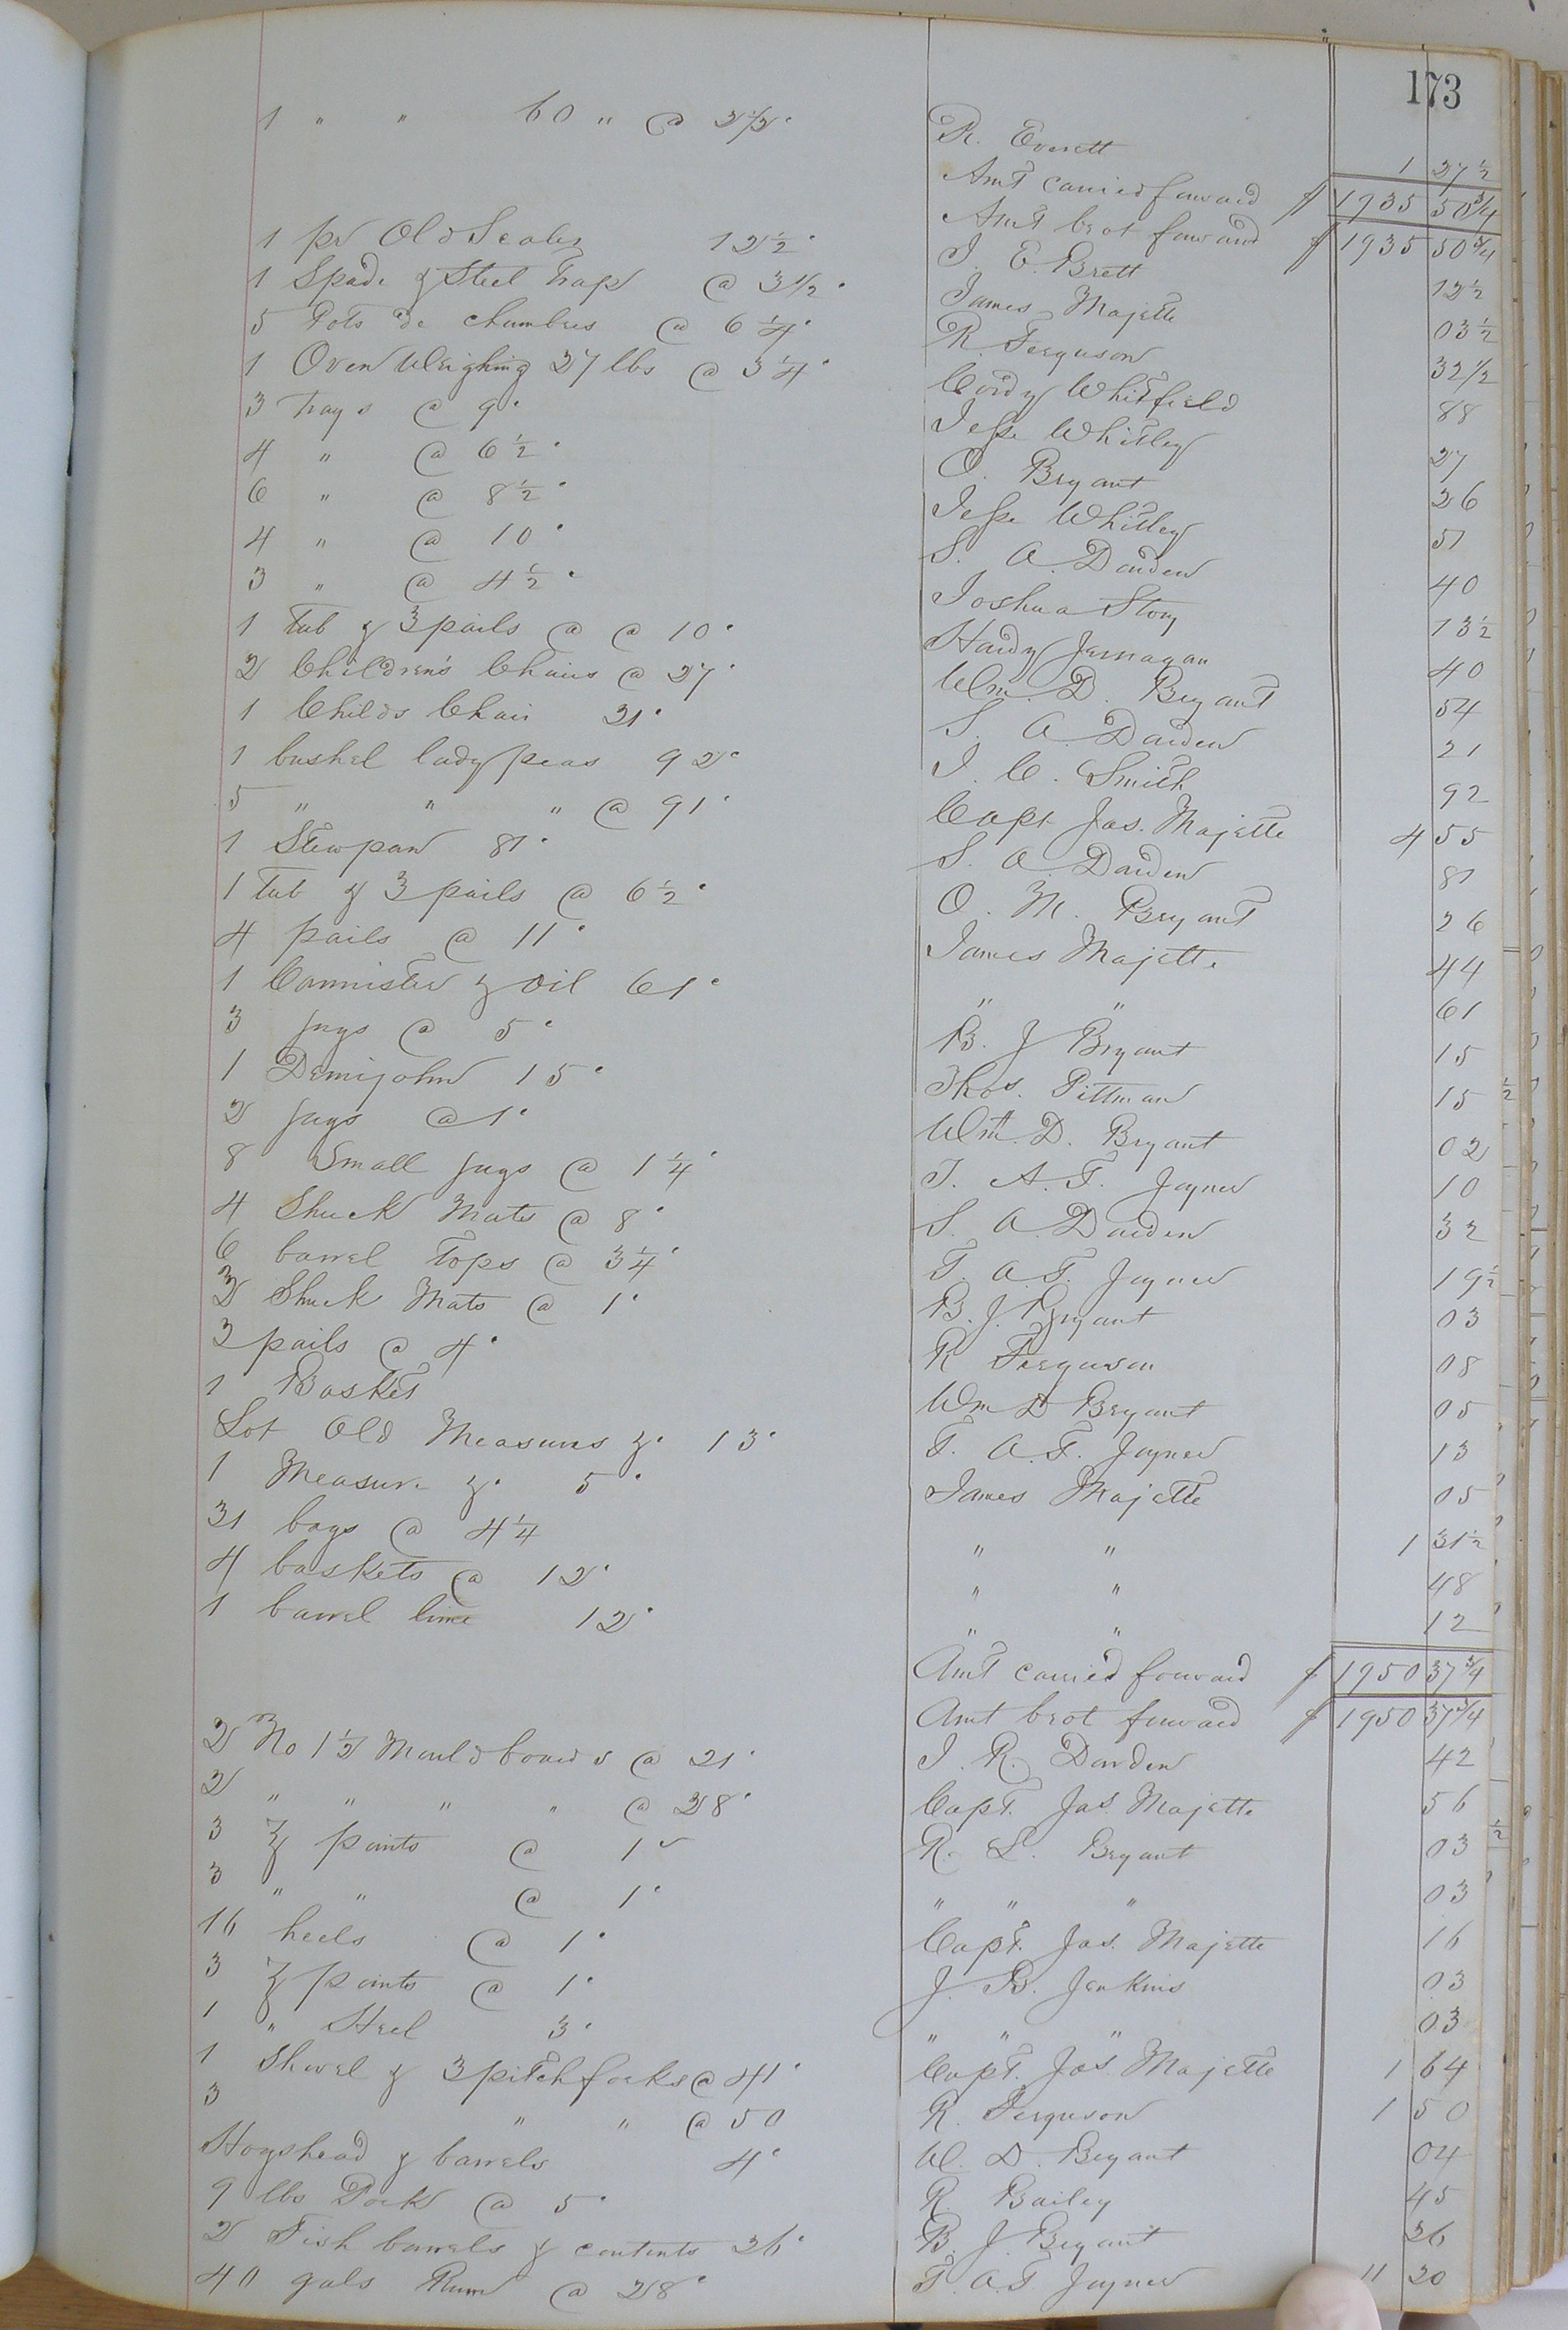 173
1 " " 60 " @ 2 1/2 c R. Everett 1 27 1/2
Amt carried forward $ 1935 50 3/4
Amt brot forward $ 1935 50 3/4
1 pr Old Scales 12 1/2 c J. E. Brett 12 1/2
1 Spade & Steel Trap @ 3 1/2 c James Majette 03 1/2
5 Pots de chambres @ 6 1/4 c R. Ferguson 32 1/2
1 Oven Weighing 27 lbs @ 3 1/4 c Cordy Whitfield 88
3 Trays @ 9 c Jesse Whitley 27
4 " @ 6 1/2 c O. Bryant 26
6 " @ 8 1/2 c Jesse Whitley 51
4 " @ 10 c S. A. Darden 40
3 " @ 4 1/2 c Joshua Story 13 1/2
1 Tub & 3 pails @ @ 10 c Hardy Jernagan 40
2 Children's Chairs @ 27 c Wm. D. Bryant 54
1 Childs Chair 21 c S. A. Darden 21
1 bushel lady peas 92 c J. C. Smith 92
5 " " " @ 91 c Capt Jas. Majette 4 55
1 Stewpan 81 c S. A. Darden 81
1 Tub & 3 pails @ 6 1/2 c O. M. Bryant 26
4 pails @ 11 c James Majette 44
1 Cannister & Oil 61 c " " 61
3 Jugs @ 5 c B. J Bryant 15
1 Demijohn 15 c Thos. Pittman 15
2 Jugs @ 1 c Wm. D. Bryant 02
8 Small Jugs @ 1 1/4 c T. A. T. Joyner 10
4 Shuck Mats @ 8 c S. A. Darden 32
6 barrel Tops @ 3 1/4 c T. A. T. Joyner 19 1/2
3 Shuck Mats @ 1 c B. J. Bryant 03
2 pails @ 4 c R Ferguson 08
1 Basket Wm D Bryant 05
Lot Old Measures &c 13 c T. A. T. Joyner 13
1 Measure &c 5 c James Majette 05
31 bags @ 4 1/4 " " 1 31 1/2
4 baskets @ 12 c " " 48
1 barrel lime 12 c " " 12
Amt carried forward $ 1950 37 3/4
Amt brot forward $ 1950 37 3/4
2 No 1 1/2 Mouldboards @ 21 c J. R. Darden 42
2 " " " " @ 28 c Capt. Jas. Majette 56
3 " points @ 1 c R. L. Bryant 03
3 " " @ 1 c " " " 03
16 heels @ 1 c Capt. Jas. Majette 16
3 points @ 1 c J. B. Jenkins 03
1 " Heel 3 c " " " 03
1 Shovel & 3 pitchforks @ 41 c Capt. Jas. Majette 1 64
3 " " @ 50 R. Ferguson 1 50
Hogshead & barrels 4 c W. D. Bryant 04
9 lbs Pork @ 5 c R. Bailey 45
2 Fish barrels & contents 36 c B. J. Bryant 36
40 gals Rum @ 28 c T. A. T Joyner 11 20